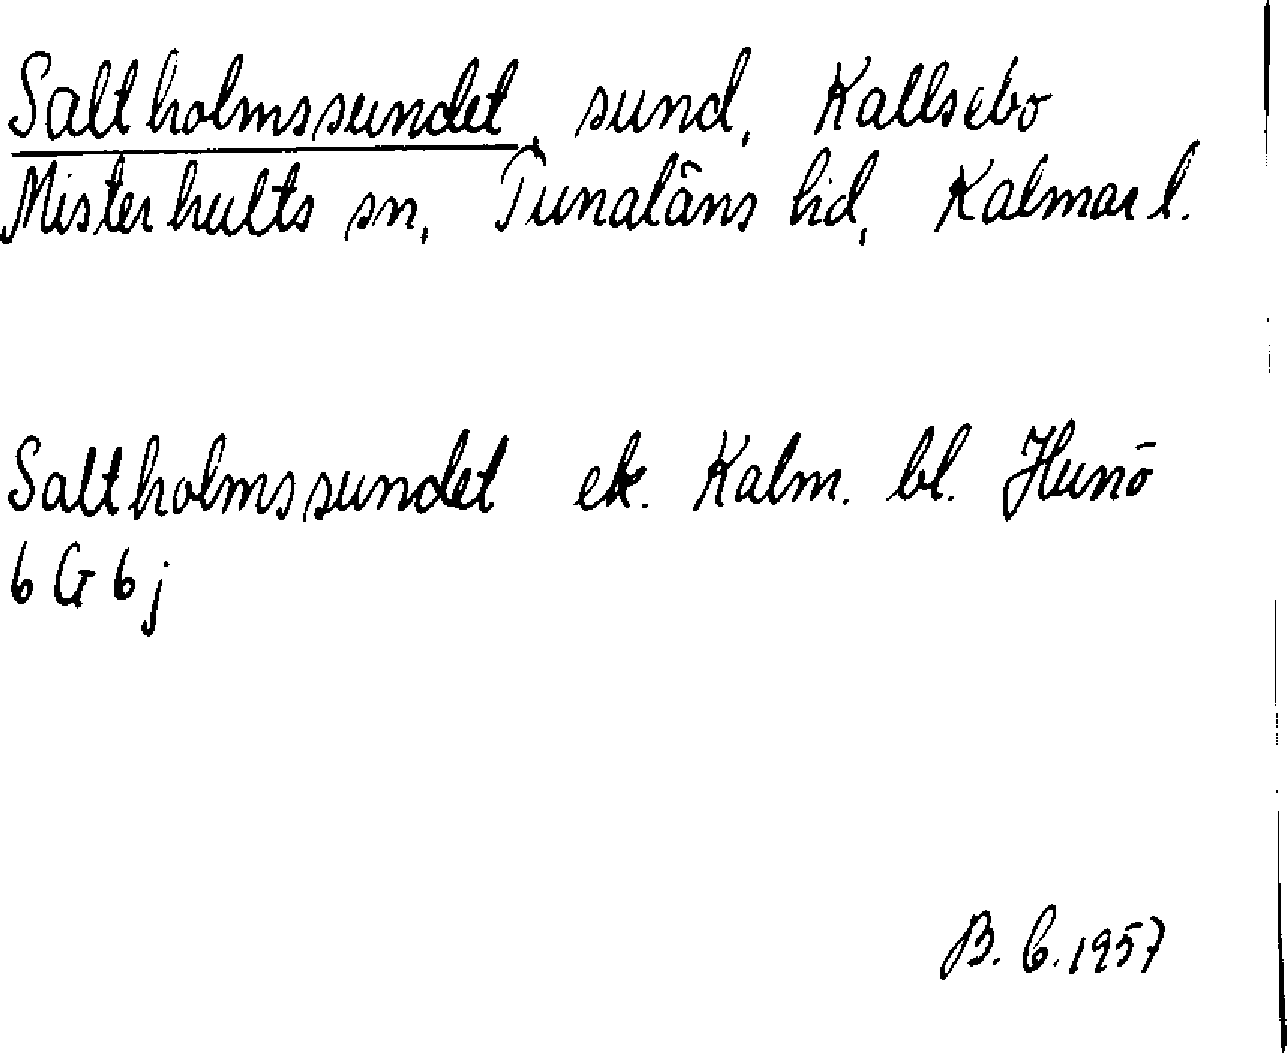 Saltholmssundet, sund, Kallsebo
Misterhults sn, Tunaläns hd, Kalmar l.
Saltholmssundet ek. Kalm. bl. Hunö
6 G 6 j
B. C. 1957